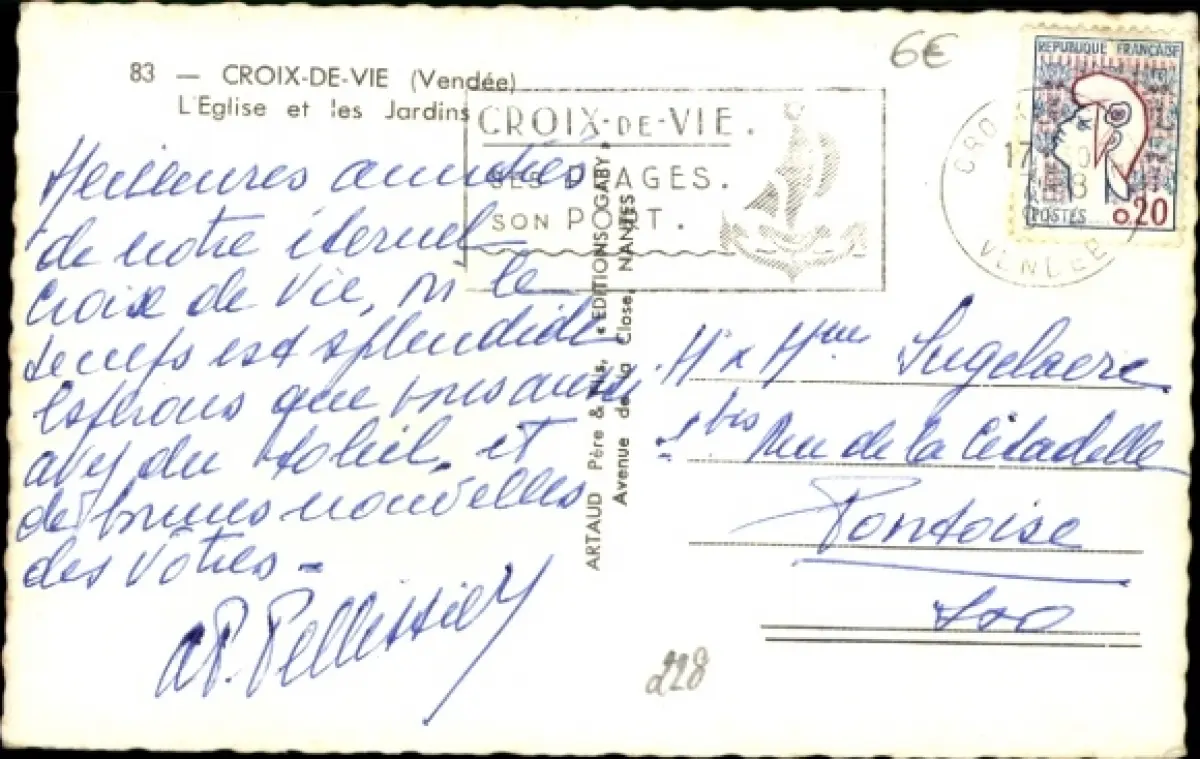 83 — CROIX-DE-VIE (Vendée)
L'Eglise et les Jardins
6€
CROIX-DE-VIE.
SES PLAGES.
SON PORT.
REPUBLIQUE FRANÇAISE
POSTES 0,20
17
VENDEE
Meilleures amitiés
de notre éternel
Croix de Vie, où le
temps est splendide
Espérons que vous avez
du soleil et
de bonnes nouvelles
des vôtres -
P. Pellissier
ARTAUD Père & Fils, « EDITIONS GABY »
Avenue de la Close, NANTES
Mr & Mme Sugelaere
bis Rue de la Citadelle
Pontoise
S&O
228